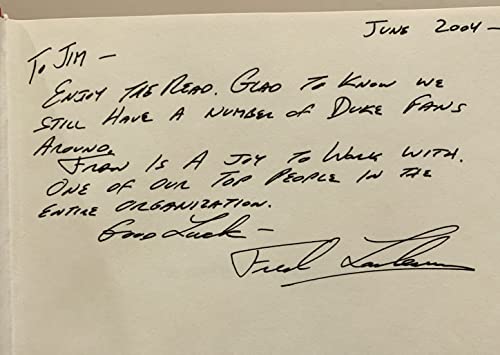 June 2004 –
To Jim –
Enjoy the Read. Glad to know we
still have a number of Duke fans
around.
Fran is a joy to work with.
One of our top people in the
entire organization.
Good Luck –
Fred